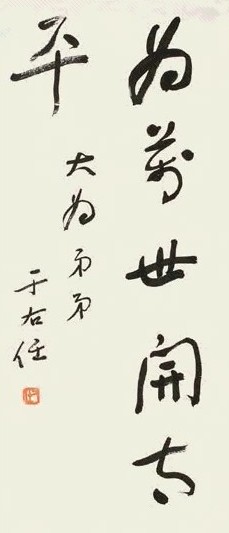 為萬世開太
平
大為弟弟
于右任